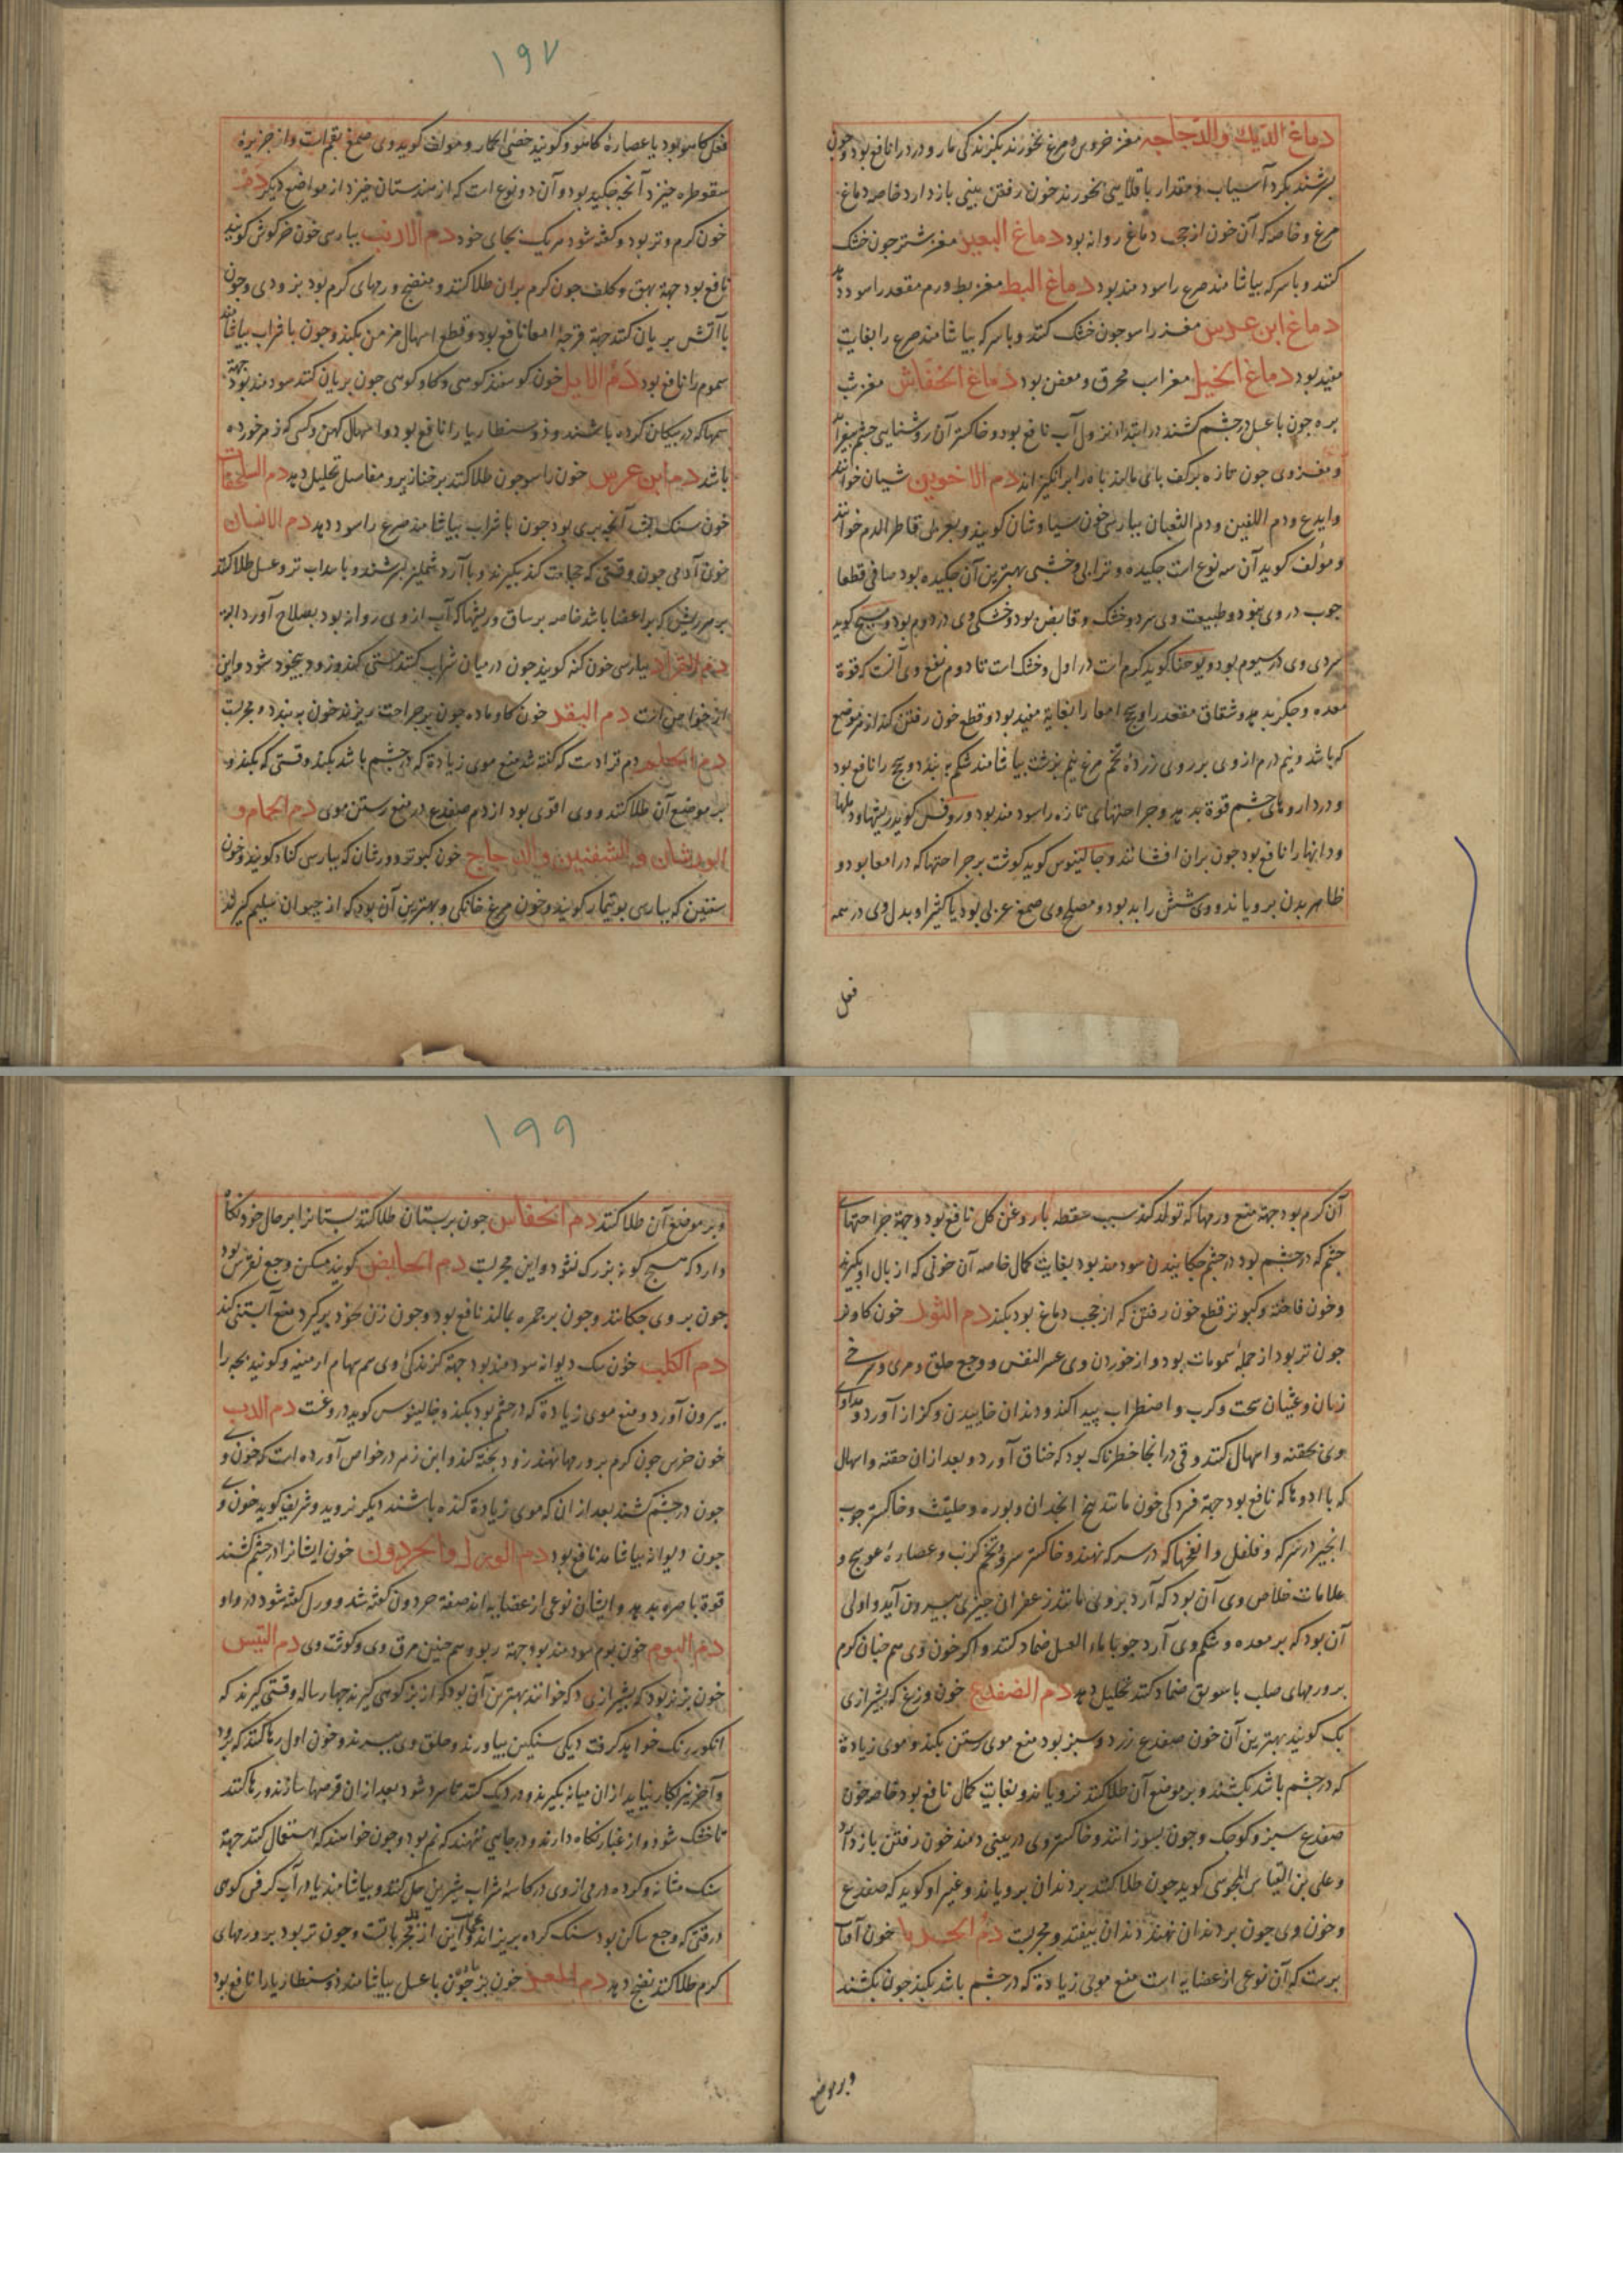 دماغ الدیك والدجاجه مغز خروس و مرغ بخورند بکزندکی مار و درد را نافع بود و جون
بسرشند بکرد آسیاب و مقدار باقلایی بخورند خون رفتن بینی بازدارد خاصه دماغ
مرغ و خاصه که آن خون از حجب دماغ روانه بود دماغ البعیر مغز شتر جون خشک
کنند و با سرکه بیاشامند صرع را سودمند بود دماغ البط مغز بط ورم مقعد را سود دهد
دماغ ابن عرس مغز راسو جون خشک کنند و با سرکه بیاشامند صرع را بغایت
مفید بود دماغ الخیل مغز اسب محرق و معفن بود دماغ الخفاش مغز شب
پره جون با عسل در جشم کشند در ابتداء نزول آب نافع بود و خاکستر آن روشنایی جشم بیفزاید
و مغز وی جون تازه بر کف پای مالند باه را برانکیزاند دم الاخوین شیان خوانند
وایدع و دم التنین و دم الثعبان بپارسی خون سیاوشان کویند و بعربی قاطر الدم خوانند
و مؤلف کوید آن سه نوع است جکیده و ترابی و خشبی بهترین آن جکیده بود صافی قطعا
جوب در وی نبود و طبیعت وی سرد و خشک و قابض بود و خشکی وی در دوم بود و مسیح کوید
سردی وی در سیوم بود و یوحنا کوید کرم است در اول و خشک است تا دوم نفع وی آنست که قوة
معده و جکر بدهد و شقاق مقعد را و سحج امعا را بغایة مفید بود و قطع خون رفتن کند از هر موضع
که باشد و نیم درم از وی بر روی زردهٔ تخم مرغ نیم برشت بیاشامند شکم ببندد و سحج را نافع بود
و در داروهای جشم قوة بدهد و جراحتهای تازه را سودمند بود و روفس کوید ریشها و دملها
و دانها را نافع بود جون بران افشانند و جالینوس کوید کوشت بر جراحتها که در امعا بود و
ظاهر بدن برویاند و وی شش را بد بود و مصلح وی صمغ عربی بود یا کثیرا و بدل وی در همه
فعل
۱۹۷
فعل کاهو بود یا عصارهٔ کاهو و کویند خصی الحمار و مولف کوید وی صمغ بقم است و از جزیرهٔ
سقوطره خیزد آنجه جکید بود و آن دو نوع است که از هندستان خیزد از مواضع دیکر دم
خون کرم و تر بود و کفته شود هر یک بجای خود دم الارنب بپارسی خون خرکوش کویند
نافع بود جهة بهق و کلف جون کرم بران طلا کنند و منضج ورمهای کرم بود بزودی و جون
با آتش بریان کنند جهة قرحهٔ امعا نافع بود و قطع اسهال مزمن بکند و جون با شراب بیاشامند
سموم را نافع بود دم الایل خون کوسفند کوهی و کاو کوهی جون بریان کنند سودمند بود جهة
سمها که در پیکان کرده باشند و ذوسنطاریا را نافع بود و اسهال کهن و کسی که زهر خورده
باشد دم ابن عرس خون راسو جون طلا کنند بر خنازیر و مفاصل تحلیل دهد دم السلحفات
خون سنک پشت آنجه بری بود جون با شراب بیاشامند صرع را سود دهد دم الانسان
خون آدمی جون وقتی که حجامت کند بکیرند و با آرد شملیز بسرشند و با سداب تر و عسل طلا کنند
بر هر ریش که بر اعضا باشد خاصه بر ساق و ریشها که آب از وی روانه بود بصلاح آورد البته
دم القراد بپارسی خون کنه کویند جون در میان شراب کنند مستی کند و زود بیخود شود و این
از خواص است دم البقر خون کاو ماده جون بر جراحت ریزند خون ببندد و مجربست
دم الحلم دم قراد است که کفته شد منع موی زیادة که در جشم باشد بکند وقتی که بکند و
بر موضع آن طلا کنند و وی اقوی بود از دم ضفدع در منع رستن موی دم الحمام و
الورشان و الشفنین و الدجاج خون کبوتر و ورشان که بپارسی کناد کویند و خون
شفنین که بپارسی بوتیمار کویند و خون مرغ خانکی و بهترین آن بود که از حیوان سلیم کیرند
آن کرم بود جهة منع ورمها که تولد کند بسبب سقطه با روغن کل نافع بود و جهة جراحتهای
جشم که در جشم بود در جشم جکانیدن سودمند بود بغایت کمال خاصه آن خونی که از بال او بکیرند
و خون فاخته و کبوتر قطع خون رفتن که از حجب دماغ بود بکند دم الثور خون کاو نر
جون تر بود از جملهٔ سمومات بود و از خوردن وی عسر النفس و وجع حلق و مری و سرخی
زبان و غثیان سخت و کرب و اضطراب پیدا کند و دندان خاییدن و کزاز آورد و مداوای
وی بحقنه و اسهال کنند و قی در انجا خطرناک بود که خناق آورد و بعد از ان حقنه و اسهال
که با ادویها که نافع بود جهة فسردکی خون مانند بیخ انجدان و بوره و حلتیت و خاکستر جوب
انجیر در سرکه و فلفل و انفخها که در سرکه نهند و خاکستر سرو و تخم کرنب و عصارهٔ عوسج و
علامات خلاص وی آن بود که آرد برونی مانند زعفران جیزی بیرون آید و اولی
آن بود که بر معده و شکم وی آرد جو با ماء العسل ضماد کنند و اکر خون وی هم جنان کرم
بر ورمهای صلب با سویق ضماد کنند تحلیل دهد دم الضفدع خون وزغ که بشیرازی
بک کویند بهترین آن خون ضفدع زرد و سبز بود منع موی رستن بکند و موی زیادة
که در جشم باشد بکشند و بر موضع آن طلا کنند نرویاند و بغایت کمال نافع بود خاصه خون
ضفدع سبز و کوجک و جون بسوزانند و خاکستر وی در بینی دمند خون رفتن بازدارد
و علی بن العباس المجوسی کوید جون طلا کنند بر دندان برویاند و غیر او کوید که ضفدع
و خون وی جون بر دندان نهند دندان بیفتد و مجربست دم الحربا خون آفتاب
پرست که آن نوعی از عضایه است منع موی زیادة که در جشم باشد بکند جون بکشند
و بر موضع
۱۹۹
و بر موضع آن طلا کنند دم الخفاش جون بر پستان طلا کنند پستانرا بر حال خود نکاه
دارد که هیچ کونه بزرک نشود و این مجربست دم الحایض کویند مسکن وجع نقرس بود
جون بر وی جکانند و جون بر جمره بمالند نافع بود و جون زن بخود برکیرد منع آبستنی کند
دم الکلب خون سک دیوانه سودمند بود جهة کزندکی وی سم سهام ارمنیه و کویند بچه را
بیرون آورد و منع موی زیادة که در جشم بود بکند و جالینوس کوید دروغست دم الدب
خون خرس جون کرم بر ورمها نهند زود پخته کند و ابن زهر در خواص آورده است که خون وی
جون در جشم کشند بعد از ان که موی زیادة کنده باشند دیکر نروید و شریف کوید خون وی
جون دیوانه بیاشامد نافع بود دم الورل والحردون خون ایشانرا در جشم کشند
قوة باصره بدهد و ایشان نوعی از عضایه اند صفة حردون کفته شد و ورل کفته شود در واو
دم البوم خون بوم سودمند بود جهة ربو و هم جنین مرق وی و کوشت وی دم التیس
خون بز نر بود که بشیرازی دکه خوانند بهترین آن بود که از بز کوهی کیرند جهارساله وقتی کیرند که
انکور رنک خواهد کرفت دیکی سنکین بیاورند و حلق وی ببرند و خون اول رها کنند که برود
و آخر نیز بکار نیاید از ان میانه بکیرند و در دیک کنند تا سرد شود بعد از ان قرصها سازند و رها کنند
تا خشک شود و از غبار نکاه دارند و در جایی ننهند که نم بود و جون خواهند که استعمال کنند جهة
سنک مثانه و کرده درمی از وی در کاسهٔ شراب شیرین حل کنند و بیاشامند یا در آب کرفس کوهی
در وقتی که وجع ساکن بود سنک کرده بریزاند و این از مجرباتست و جون تر بود بر ورمهای
کرم طلا کنند نضج دهد دم المعز خون بز جون با عسل بیاشامند ذوسنطاریا را نافع بود